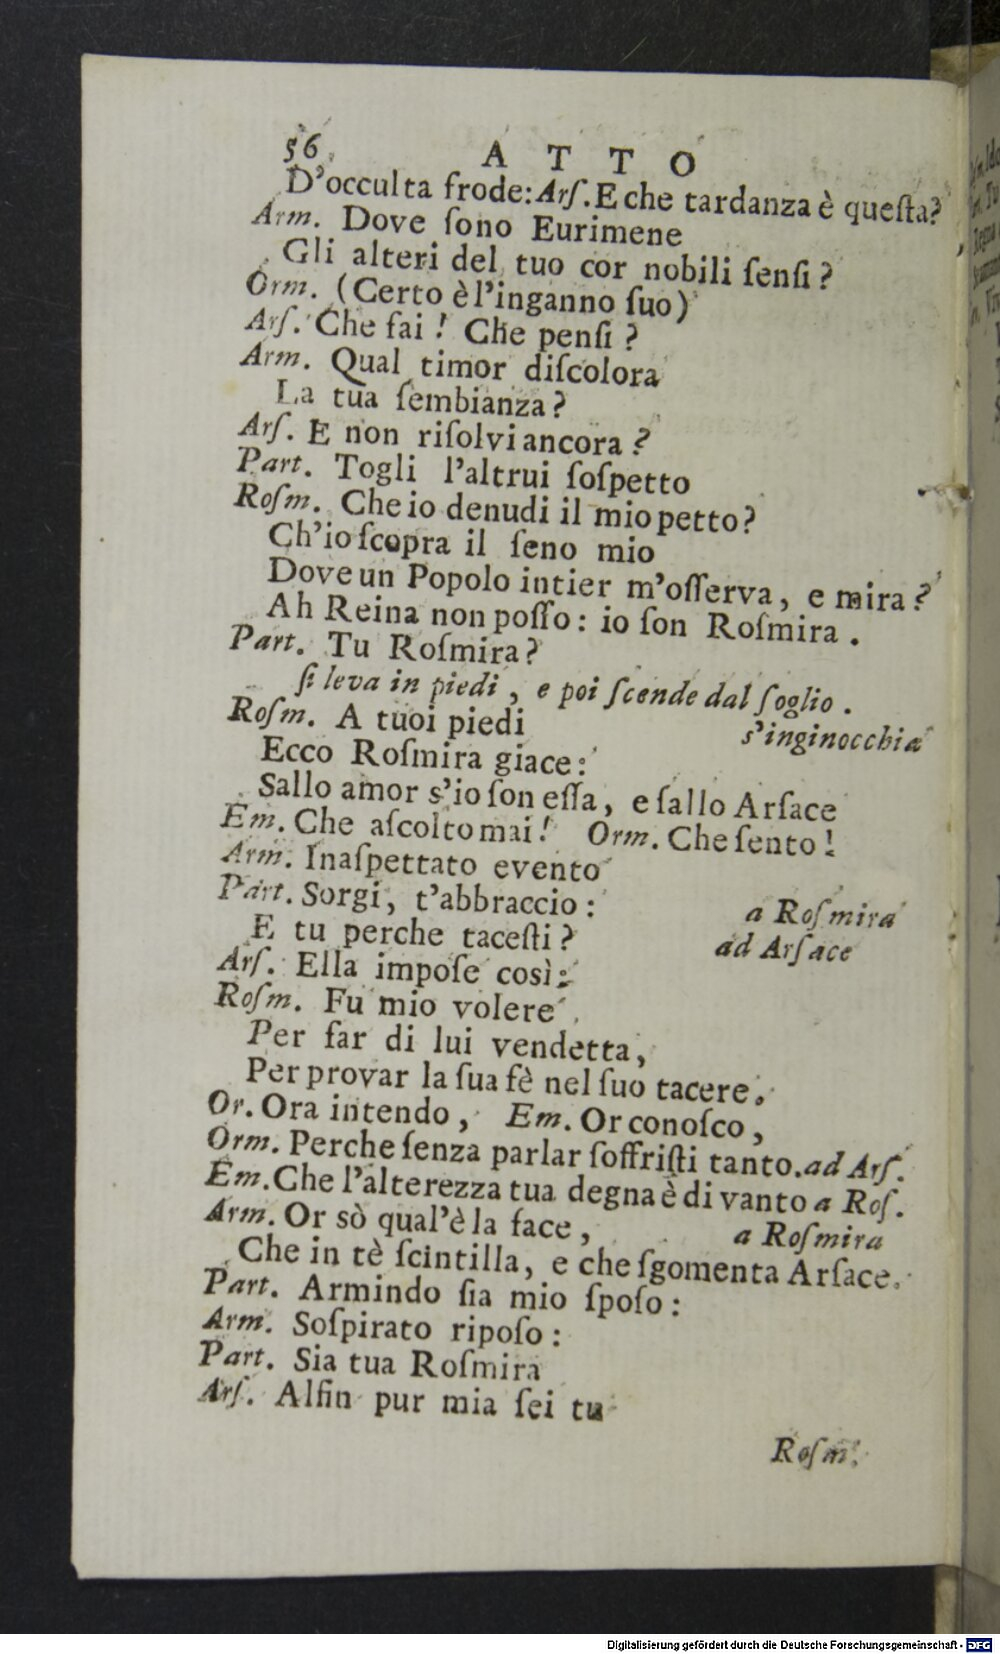 56 ATTO
D'occulta frode: Arſ. E che tardanza è queſta?
Arm. Dove ſono Eurimene
Gli alteri del tuo cor nobili ſenſi?
Orm. (Certo è l'inganno ſuo)
Arſ. Che fai! Che penſi?
Arm. Qual timor diſcolora
La tua ſembianza?
Arſ. E non riſolvi ancora?
Part. Togli l'altrui ſoſpetto
Roſm. Che io denudi il mio petto?
Ch'io ſcopra il ſeno mio
Dove un Popolo intier m'oſſerva, e mira?
Ah Reina non poſſo: io ſon Roſmira.
Part. Tu Roſmira?
ſi leva in piedi, e poi ſcende dal ſoglio.
Roſm. A tuoi piedi s'inginocchia
Ecco Roſmira giace:
Sallo amor s'io ſon eſſa, e ſallo Arſace
Em. Che aſcolto mai! Orm. Che ſento!
Arm. Inaſpettato evento
Part. Sorgi, t'abbraccio: a Roſmira
E tu perche taceſti? ad Arſace
Arſ. Ella impoſe così:
Roſm. Fu mio volere
Per far di lui vendetta,
Per provar la ſua fè nel ſuo tacere.
Or. Ora intendo, Em. Or conoſco,
Orm. Perche ſenza parlar ſoffriſti tanto. ad Arſ.
Em. Che l'alterezza tua degna è di vanto a Roſ.
Arm. Or sò qual'è la face, a Roſmira
Che in tè ſcintilla, e che ſgomenta Arſace.
Part. Armindo ſia mio ſpoſo:
Arm. Soſpirato ripoſo:
Part. Sia tua Roſmira
Arſ. Alfin pur mia ſei tu
Roſm.
Digitalisierung gefördert durch die Deutsche Forschungsgemeinschaft - DFG